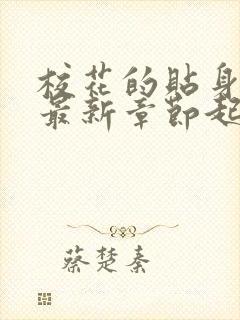 校花的贴身
最新章節起
蔡楚秦